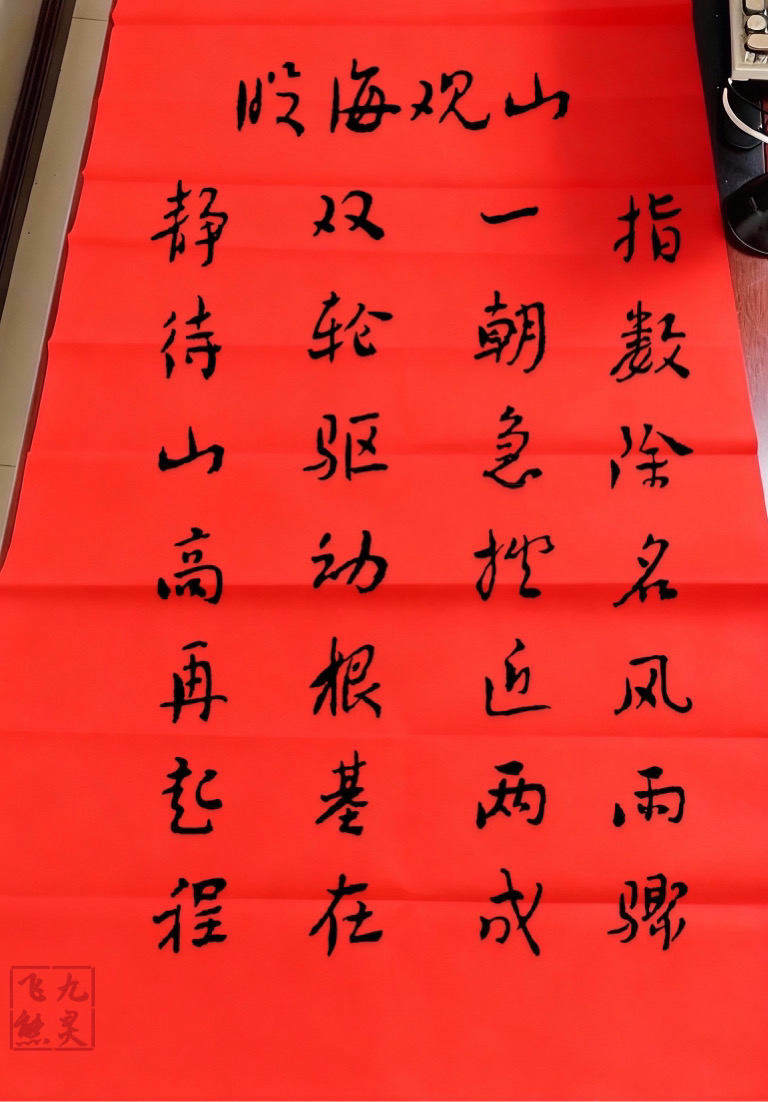 股海观山
指数除名风雨骤
一朝急挫近两成
双轮驱动根基在
静待山高再起程
九灵飞熊